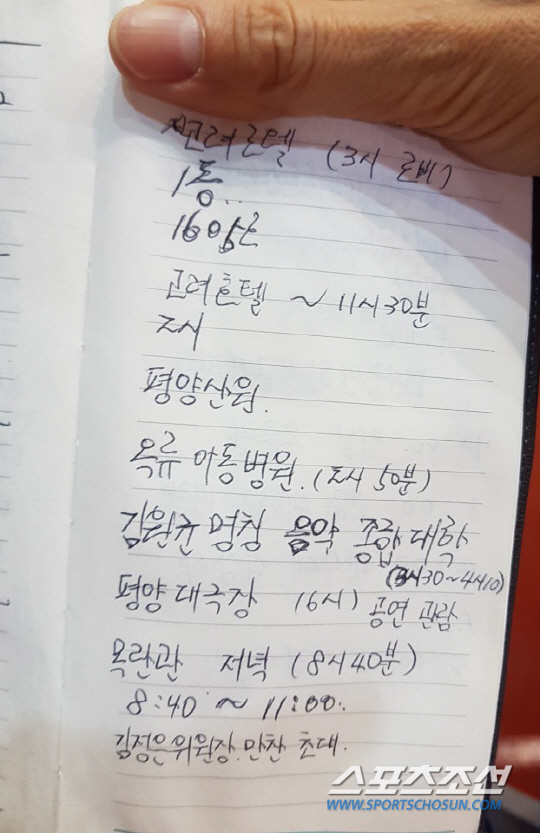 고려호텔 (3시 로비)
1층..
고려호텔 ~ 11시30분
2시
평양산원.
옥류 아동병원. (2시 50분)
김원균 명칭 음악 종합 대학
(3시30~4시10)
평양 대극장 (6시) 공연 관람.
옥란관 저녁 (8시40분)
8:40 ~ 11:00.
김정은위원장. 만찬 초대.
스포츠조선
WWW.SPORTSCHOSUN.COM